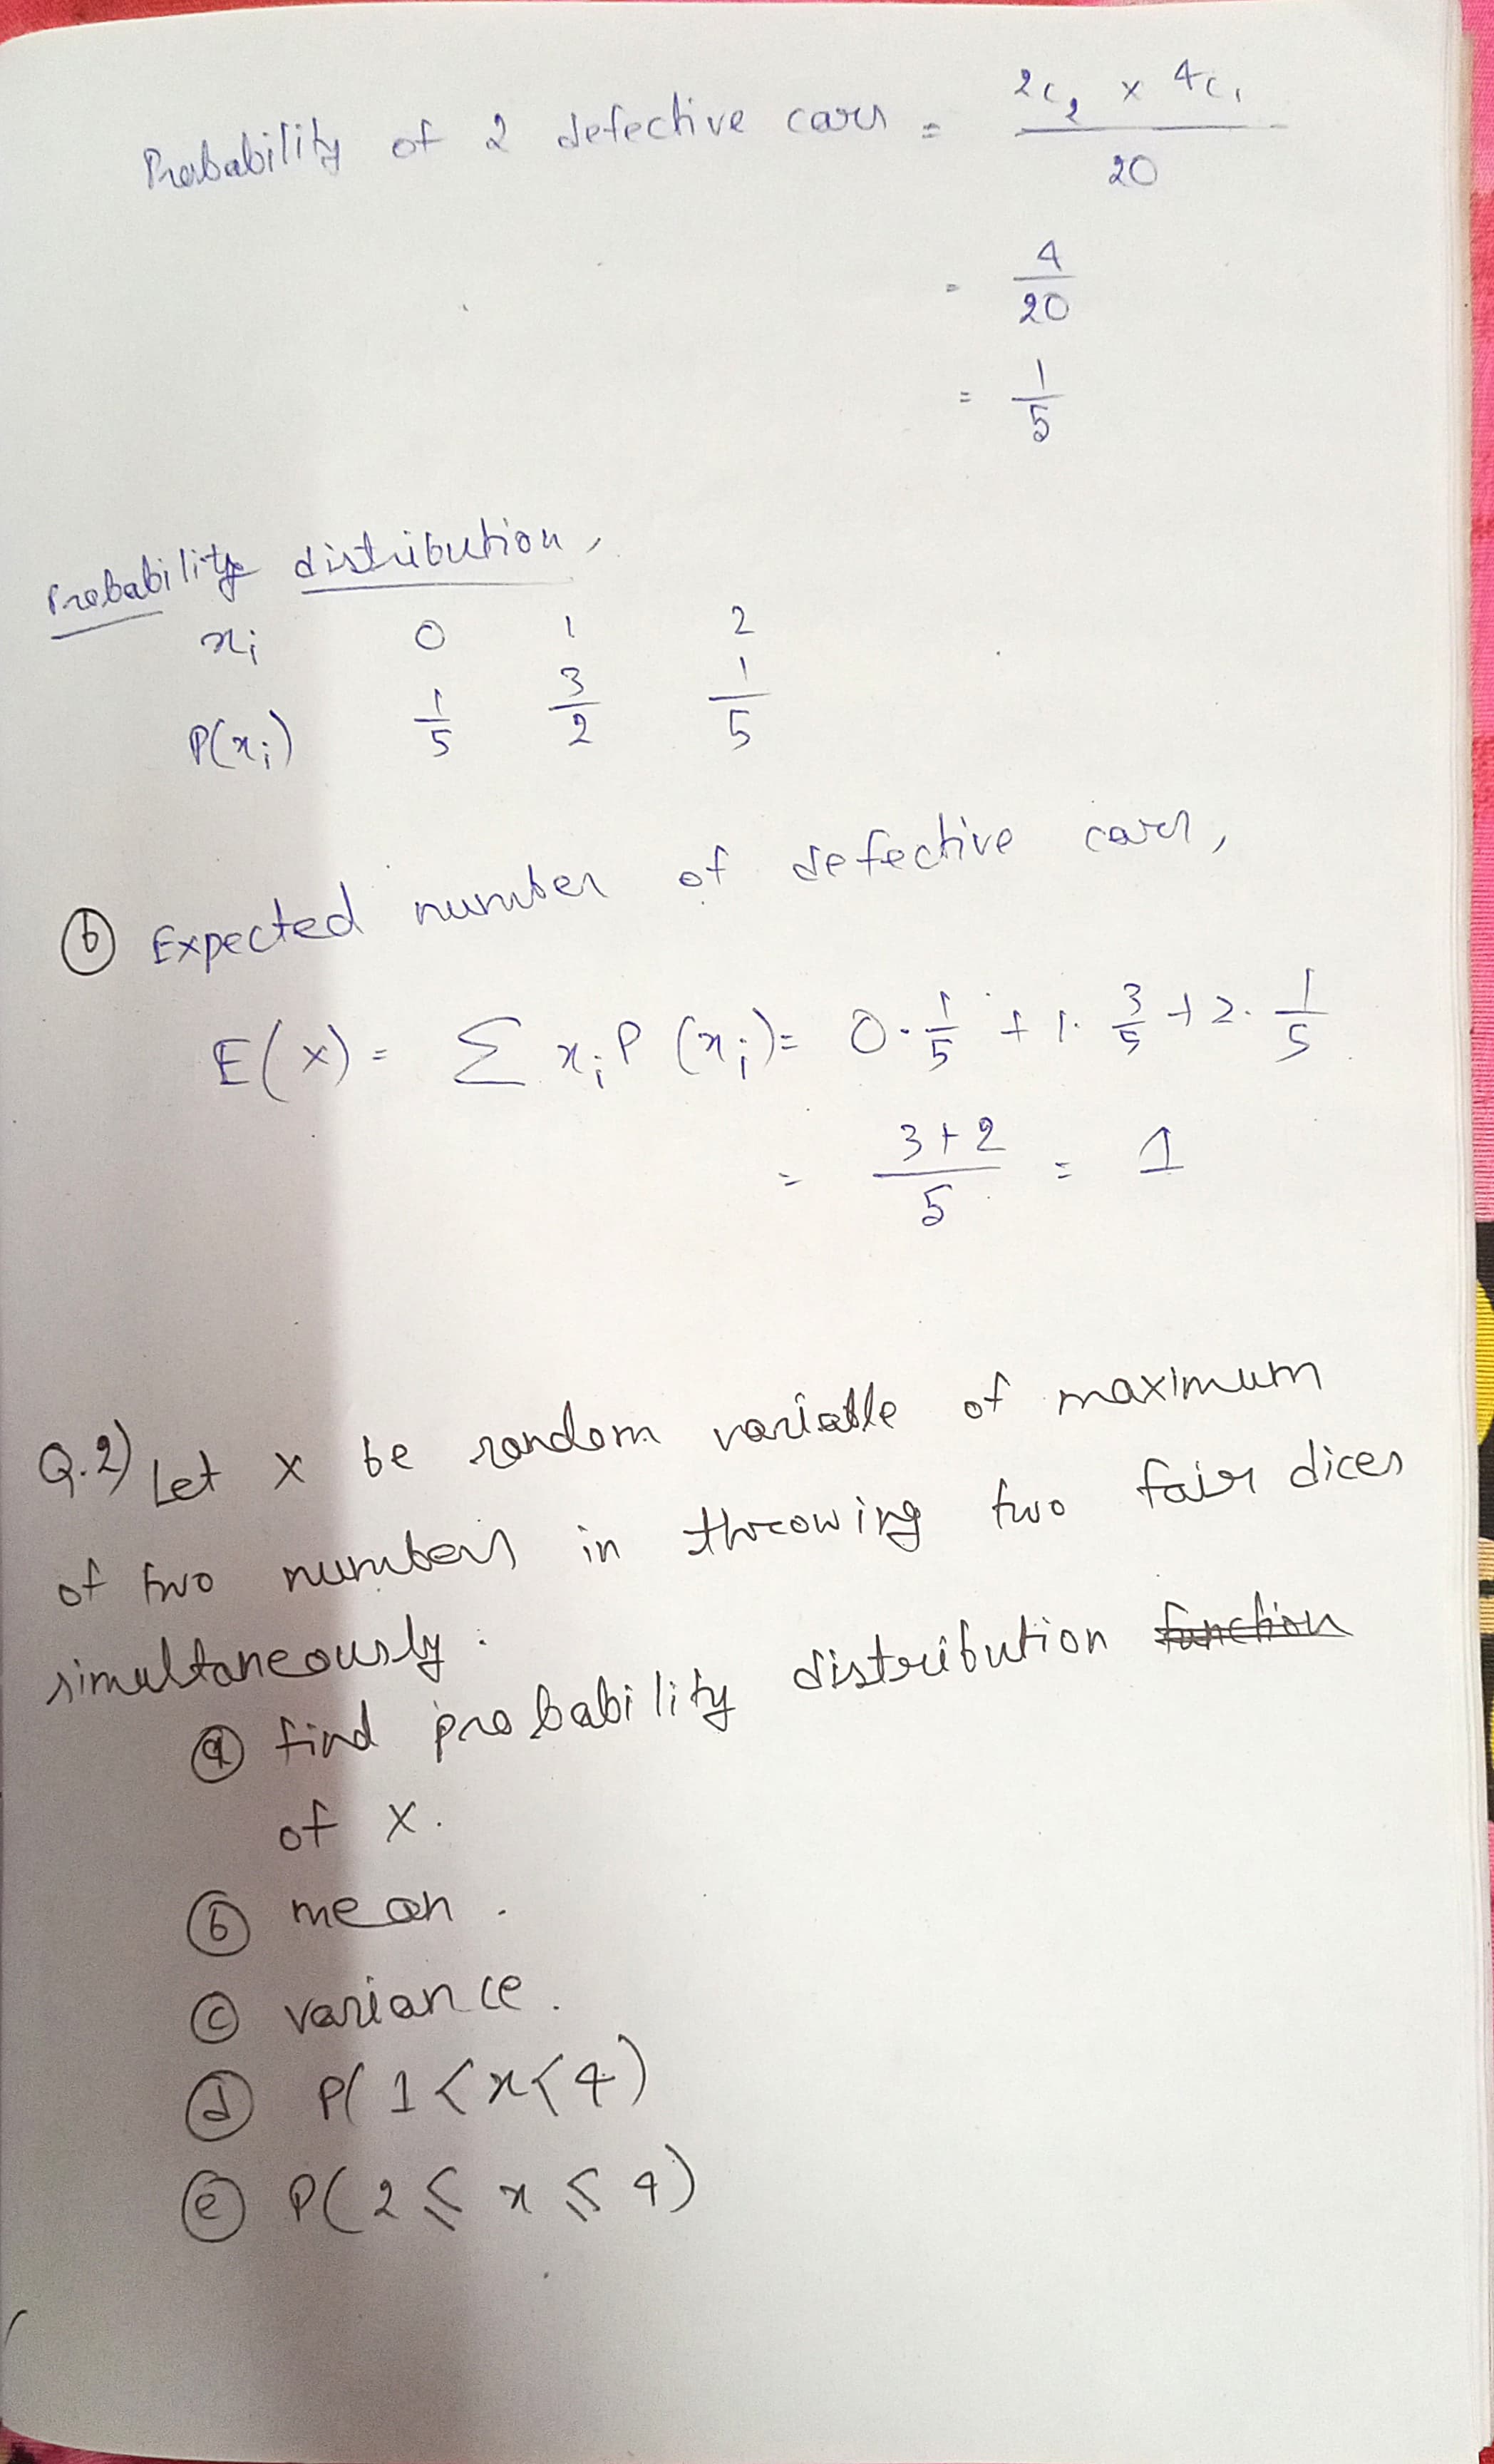 Probability of 2 defective cars = 2c₂ × 4c₁ / 20
= 4/20
= 1/5
Probability distribution,
xi 0 1 2
P(xi) 1/5 3/2 1/5
ⓑ Expected number of defective cars,
E(x) = Σ xi P(xi) = 0·1/5 + 1·3/5 + 2·1/5
= 3+2/5 = 1
Q.2) Let x be random variable of maximum
of two numbers in throwing two fair dices
simultaneously.
ⓐ find probability distribution function
of x.
ⓑ mean.
ⓒ variance.
ⓓ P(1<x<4)
ⓔ P(2≤x≤4)